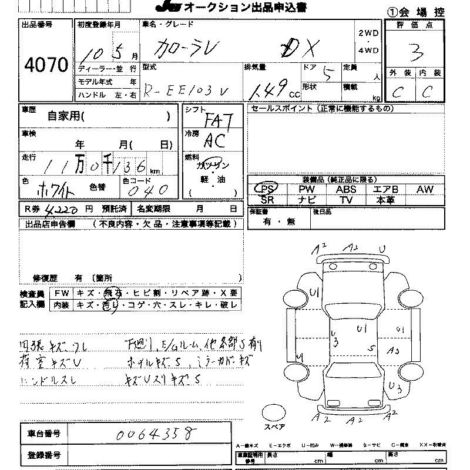 JU オークション出品申込書
①会 場 控
出品番号
4070
初度登録年月
10年5月
ディーラー・並 行
モデル年式 年
ハンドル 左・右
車名・グレード
カローラV DX
2WD
4WD
型式
R-EE103V
排気量
1.49cc
ドア
5
形状
定員
人
積載
kg
評 価 点
3
外 装 内 装
C C
車歴
自家用( )
車検
年 月( )日
走行
11万0千136km
色
ホワイト
色替
色コード
040
シフト
FAT
冷房
AC
燃料
ガソリン
軽・油
( )
セールスポイント (正常に機能するもの)
装備品(純正品に限る)
PS PW ABS エアB AW
SR ナビ TV 本革
保証書
有・無
後日品
R券 4220円 預託済 名変期限 月 日
出品店申告欄 (不良内容・欠品・注意事項等記載)
修復歴 有 〔箇所 〕
検査員
記入欄
FW キズ・飛石・ヒビ割・リペア跡・X要
内装 キズ・汚レ・コゲ・穴・スレ・キレ・破レ
内張キズ・クレ
荷室キズU
ハンドルスレ
下廻り、E/gルーム、他各部S有り
ホイルキズS、ミラーカバーキズ
キズUスリキズS
A2 U A2
U1 U1
U
3 S
5
U
U
3
A2 A2
A2
スペア
車台番号
0064358
登録番号
A－線キズ E－エクボ U－凹み W－補修跡 S－サビ C－腐食 XX－交換済
車庫証明用
参考
長さ
cm
幅
cm
高さ
cm